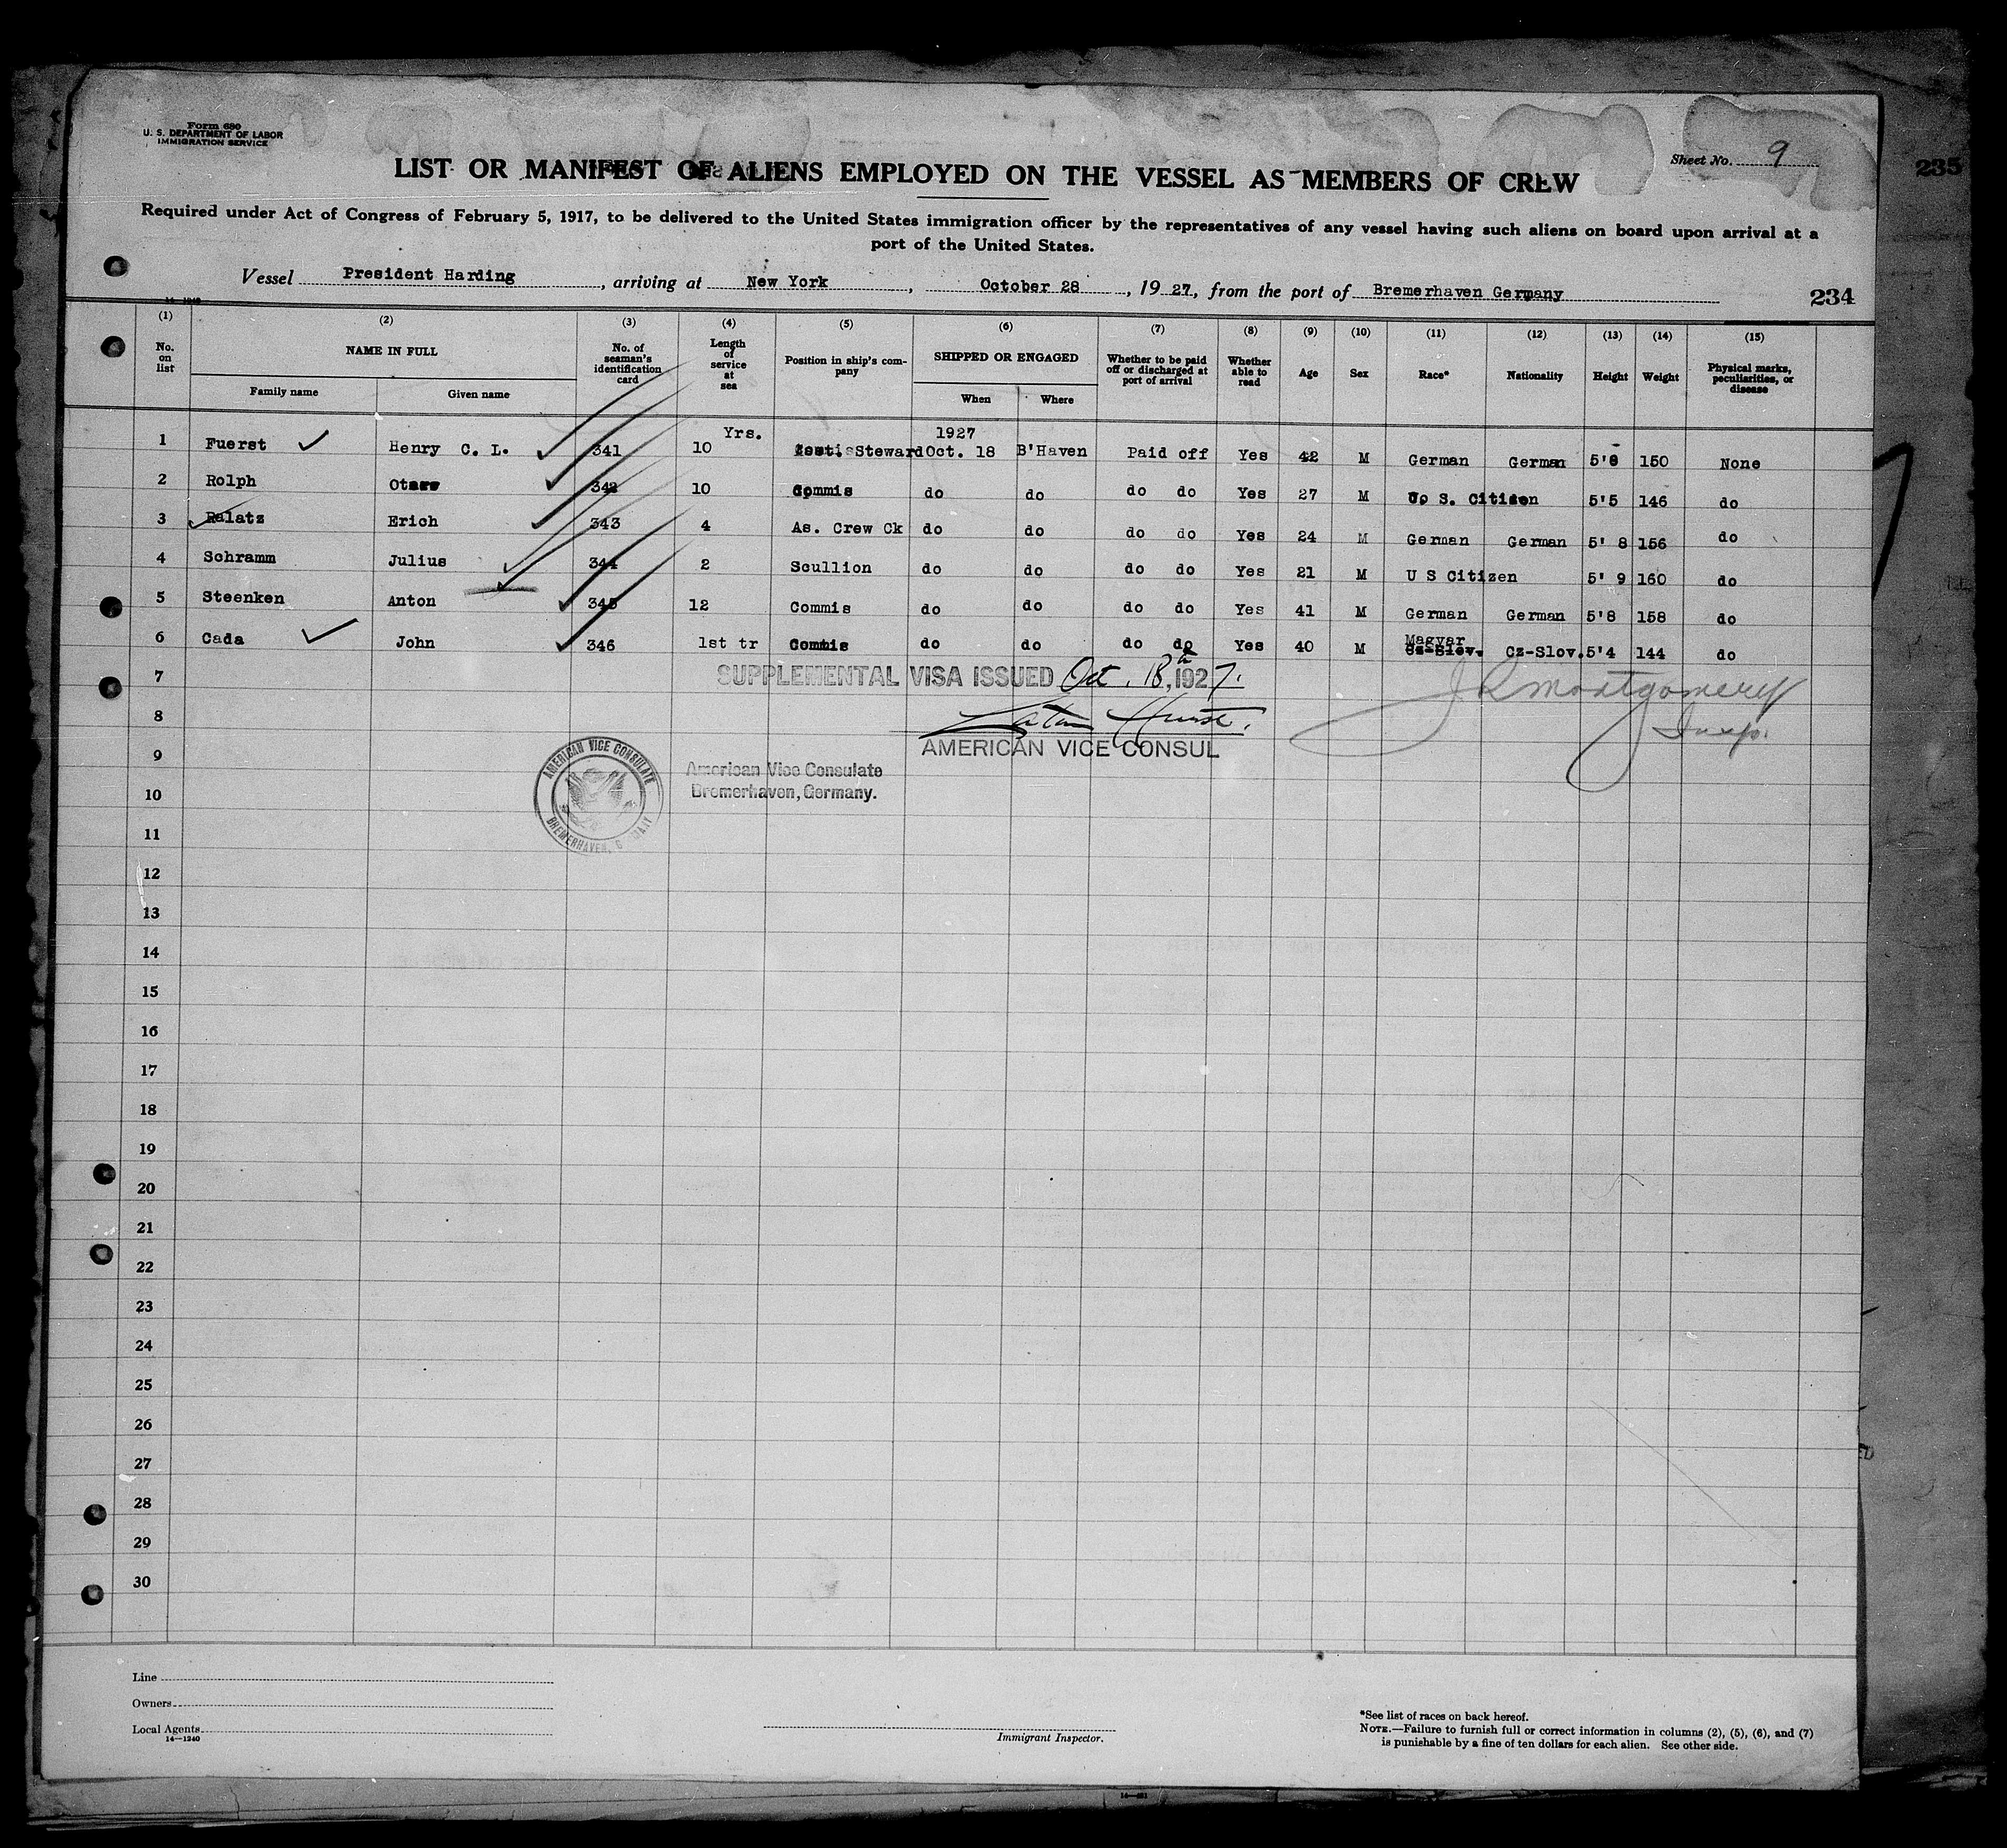 Form 680
U. S. DEPARTMENT OF LABOR
IMMIGRATION SERVICE
Sheet No. 9
235
LIST OR MANIFEST OF ALIENS EMPLOYED ON THE VESSEL AS MEMBERS OF CREW
Required under Act of Congress of February 5, 1917, to be delivered to the United States immigration officer by the representatives of any vessel having such aliens on board upon arrival at a
port of the United States.
Vessel President Harding, arriving at New York, October 28, 1927, from the port of Bremerhaven Germany
234
14-1240
(1) (2) (3) (4) (5) (6) (7) (8) (9) (10) (11) (12) (13) (14) (15)
No. on list NAME IN FULL Family name Given name No. of seaman's identification card Length of service at sea Position in ship's company SHIPPED OR ENGAGED When Where Whether to be paid off or discharged at port of arrival Whether able to read Age Sex Race* Nationality Height Weight Physical marks, peculiarities, or disease
Yrs. 1927
1 Fuerst Henry C. L. 341 10 Steward Oct. 18 B'Haven Paid off Yes 42 M German German 5'8 150 None
2 Rolph 342 10 Commis do do do do Yes 27 M U. S. Citizen 5'5 146 do
3 Ralatz Erich 343 4 As. Crew Ck do do do do Yes 24 M German German 5' 8 156 do
4 Schramm Julius 344 2 Scullion do do do do Yes 21 M U S Citizen 5' 9 160 do
5 Steenken Anton 345 12 Commis do do do do Yes 41 M German German 5'8 158 do
6 Cada John 346 1st tr Commis do do do do Yes 40 M Magyar Cz-Slov. Cz-Slov. 5'4 144 do
7 SUPPLEMENTAL VISA ISSUED Oct. 18th, 1927.
J R Montgomery
8
Insp.
AMERICAN VICE CONSUL
9
AMERICAN VICE CONSULATE
BREMERHAVEN, G MANY
American Vice Consulate
Bremerhaven, Germany.
10
11
12
13
14
15
16
17
18
19
20
21
22
23
24
25
26
27
28
29
30
Line
Owners
Local Agents
14—1240
Immigrant Inspector.
*See list of races on back hereof.
NOTE.—Failure to furnish full or correct information in columns (2), (5), (6), and (7)
is punishable by a fine of ten dollars for each alien. See other side.